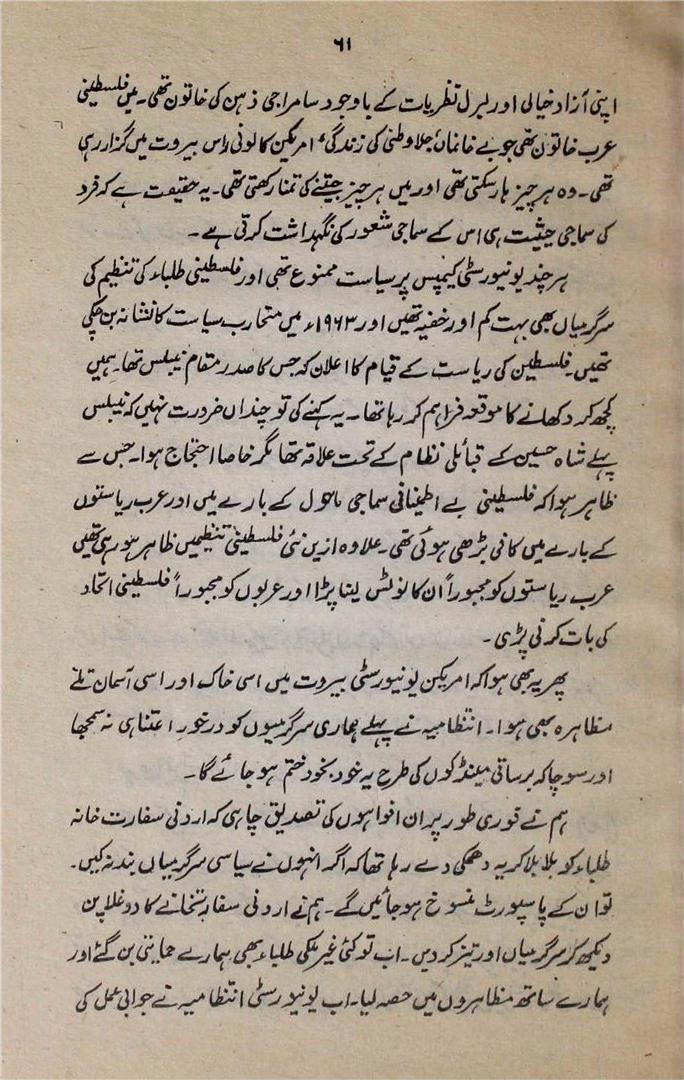 ۶۱
اپنی آزاد خیالی اور لبرل نظریات کے باوجود سامراجی ذہن کی خاتون تھی۔ میں فلسطینی
عرب خاتون تھی جو بے خانماں جلاوطنی کی زندگی امریکن کالونی راس بیروت میں گزار رہی
تھی۔ وہ ہر چیز ہار سکتی تھی اور میں ہر چیز جیتنے کی تمنا رکھتی تھی۔ یہ حقیقت ہے کہ فرد
کی سماجی حیثیت ہی اس کے سماجی شعور کی نگہداشت کرتی ہے۔
ہر چند یونیورسٹی کیمپس پر سیاست ممنوع تھی اور فلسطینی طلباء کی تنظیم کی
سرگرمیاں بھی بہت کم اور خفیہ تھیں اور ۱۹۶۳ء میں متحارب سیاست کا نشانہ بن چکی
تھیں۔ فلسطین کی ریاست کے قیام کا اعلان کہ جس کا صدر مقام نیبلس تھا۔ ہمیں
کچھ کر دکھانے کا موقعہ فراہم کر رہا تھا۔ یہ کہنے کی تو چنداں ضرورت نہیں کہ نیبلس
پہلے شاہ حسین کے قبائلی نظام کے تحت علاقہ تھا مگر خاصا احتجاج ہوا۔ جس سے
ظاہر ہوا کہ فلسطینی بے اطمینانی سماجی ماحول کے بارے میں اور عرب ریاستوں
کے بارے میں کافی بڑھی ہوئی تھی۔ علاوہ ازیں نئی فلسطینی تنظیمیں ظاہر ہو رہی تھیں
عرب ریاستوں کو مجبوراً ان کا نوٹس لینا پڑا اور عربوں کو مجبوراً فلسطینی اتحاد
کی بات کرنی پڑی۔
پھر یہ بھی ہوا کہ امریکن یونیورسٹی بیروت میں اسی خاک اور اسی آسمان تلے
مظاہرہ بھی ہوا۔ انتظامیہ نے پہلے ہماری سرگرمیوں کو درخورِ اعتنا ہی نہ سمجھا
اور سوچا کہ برساتی مینڈکوں کی طرح یہ خود بخود ختم ہو جائے گا۔
ہم نے فوری طور پر ان افواہوں کی تصدیق چاہی کہ اردنی سفارت خانہ
طلباء کو بلا بلا کر یہ دھمکی دے رہا تھا کہ اگر انہوں نے سیاسی سرگرمیاں بند نہ کیں۔
تو ان کے پاسپورٹ منسوخ ہو جائیں گے۔ ہم نے اردنی سفارتخانے کا دوغلا پن
دیکھ کر سرگرمیاں اور تیز کر دیں۔ اب تو کئی غیر ملکی طلباء بھی ہمارے حمایتی بن گئے اور
ہمارے ساتھ مظاہروں میں حصہ لیا۔ اب یونیورسٹی انتظامیہ نے جوابی عمل کی